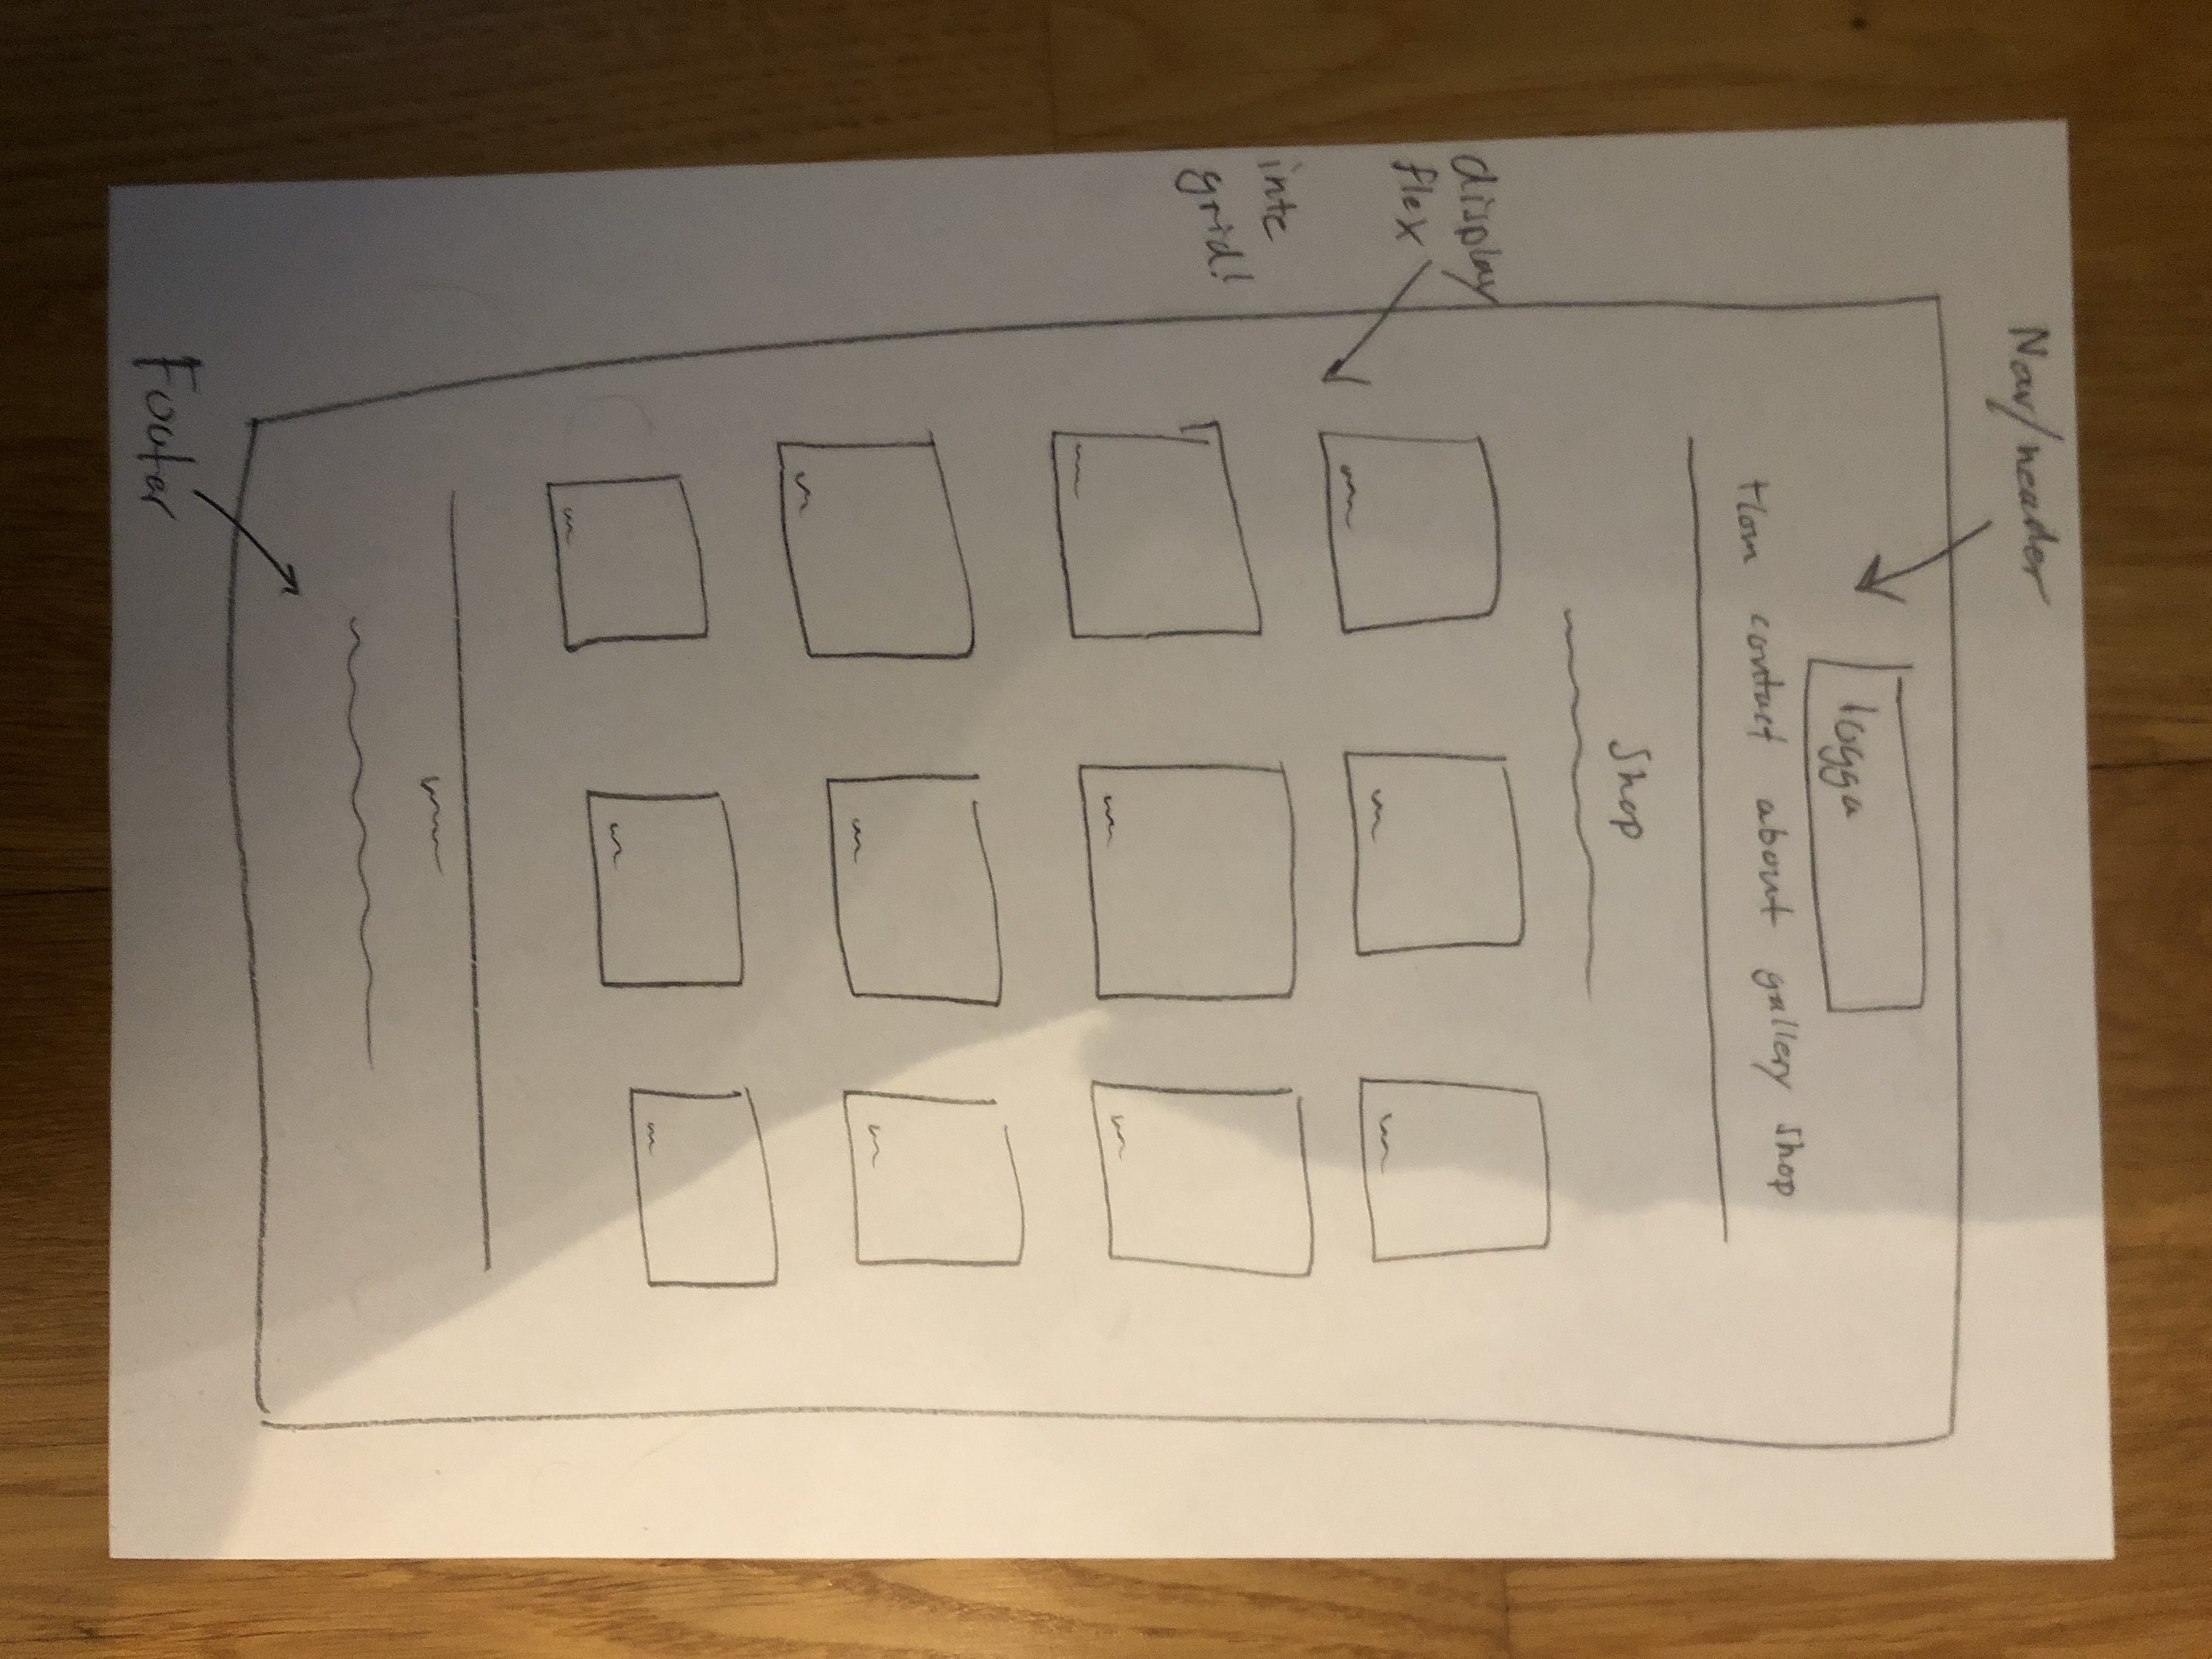 Nav/header
logga
Hom contact about gallery shop
Shop
display
flex
inte
grid!
Footer